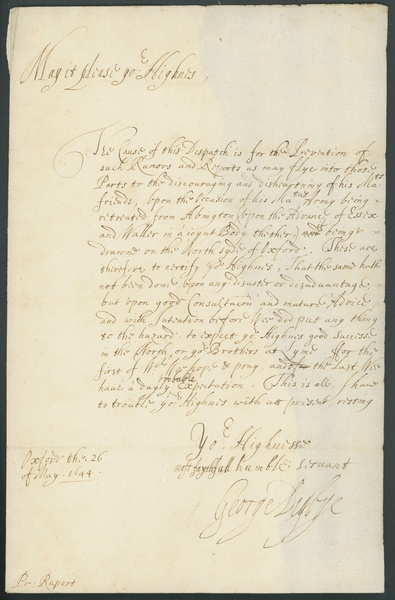 May it please yor Highnes,
The Cause of this Dispatch is for the Prevention of
such Rumors and Reports as may flye into those
Parts to the discouraging and disheartning of his Mats
friends, upon the Occasion of his Mats Army being
retreated from Abington (upon the Advance of Essex
and Waller in a ioynt Body thether) and being
drawne on the North syde of Oxford. These are
therefore to certify yor Highnes, That the same hath
not been done upon any disaster or disadvantage,
but upon good Consultacon and mature Advice
and with Intention before Wee did put any thing
to the hazard, to expect yor Highnes good successe
in the North, or yor Brothers at Lyme. For the
first of wch Wee hope & pray, and of the last Wee
have a dayly probable Expectation. This is all I have
to trouble yor Highnes with att present, resting
Yor Highnesse
most faythfull humble servant
George Digbye
Oxford the 26
of May 1644.
Pr. Rupert